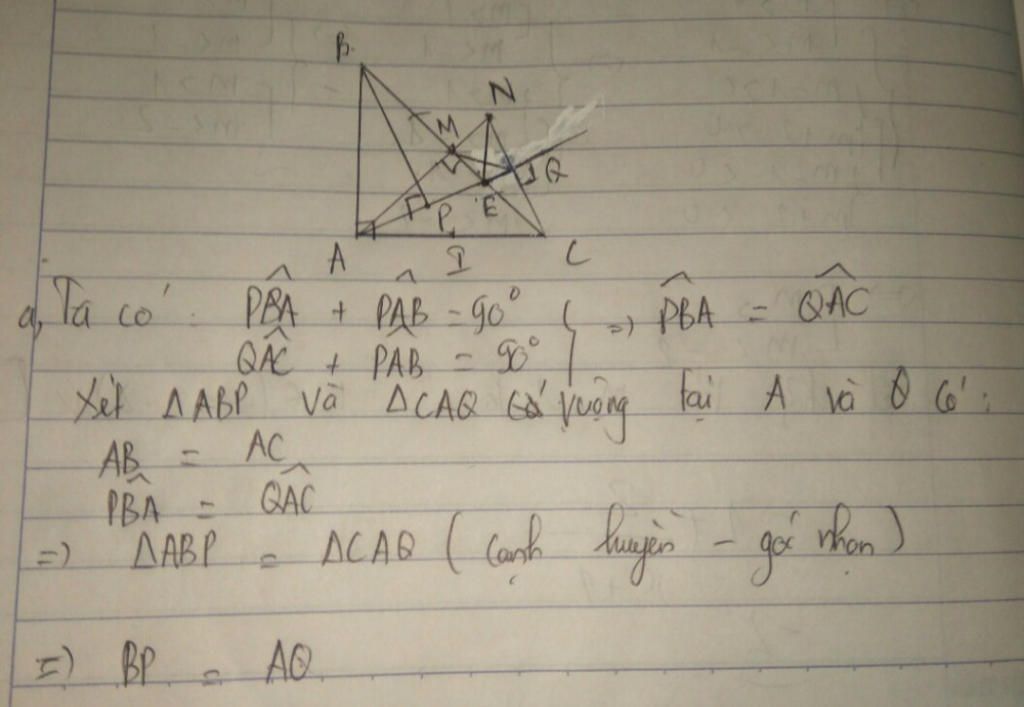 B
N
M
Q
P
E
A
I
C
a, Ta có: PBA + PAB = 90° } => PBA = QAC
QAC + PAB = 90°
Xét ΔABP và ΔCAQ vuông tại A và Q có:
AB = AC
PBA = QAC
=> ΔABP = ΔCAQ (cạnh huyền - góc nhọn)
=> BP = AQ